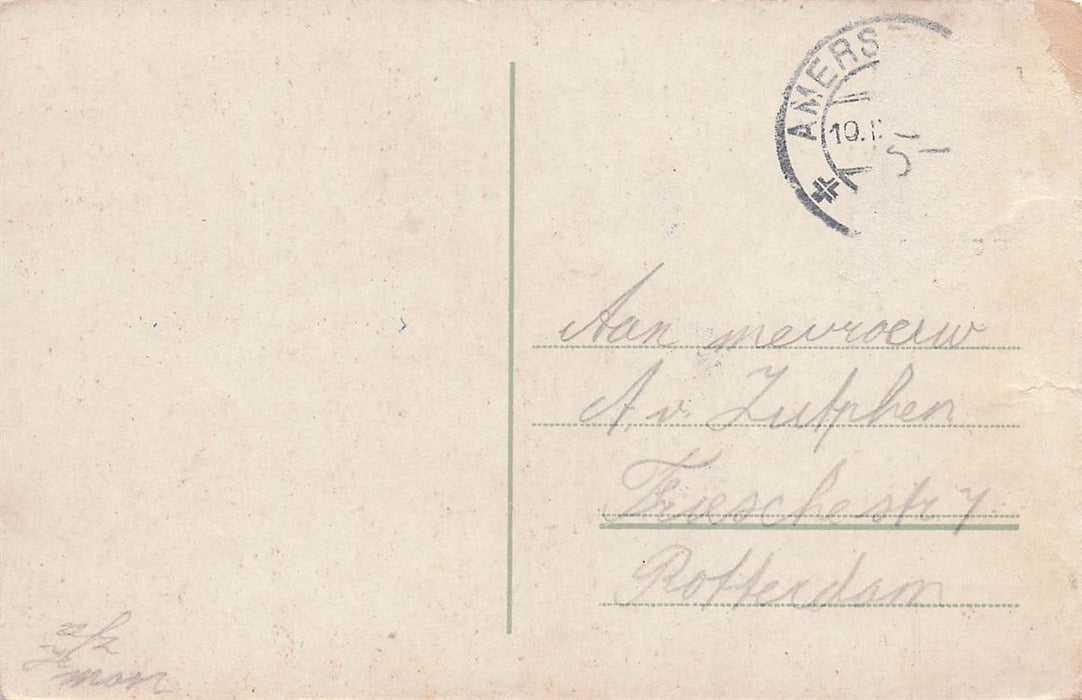 AMERS
10.
Aan mevrouw
A v. Zutphen
Frieschestr 7
Rotterdam
afz
man